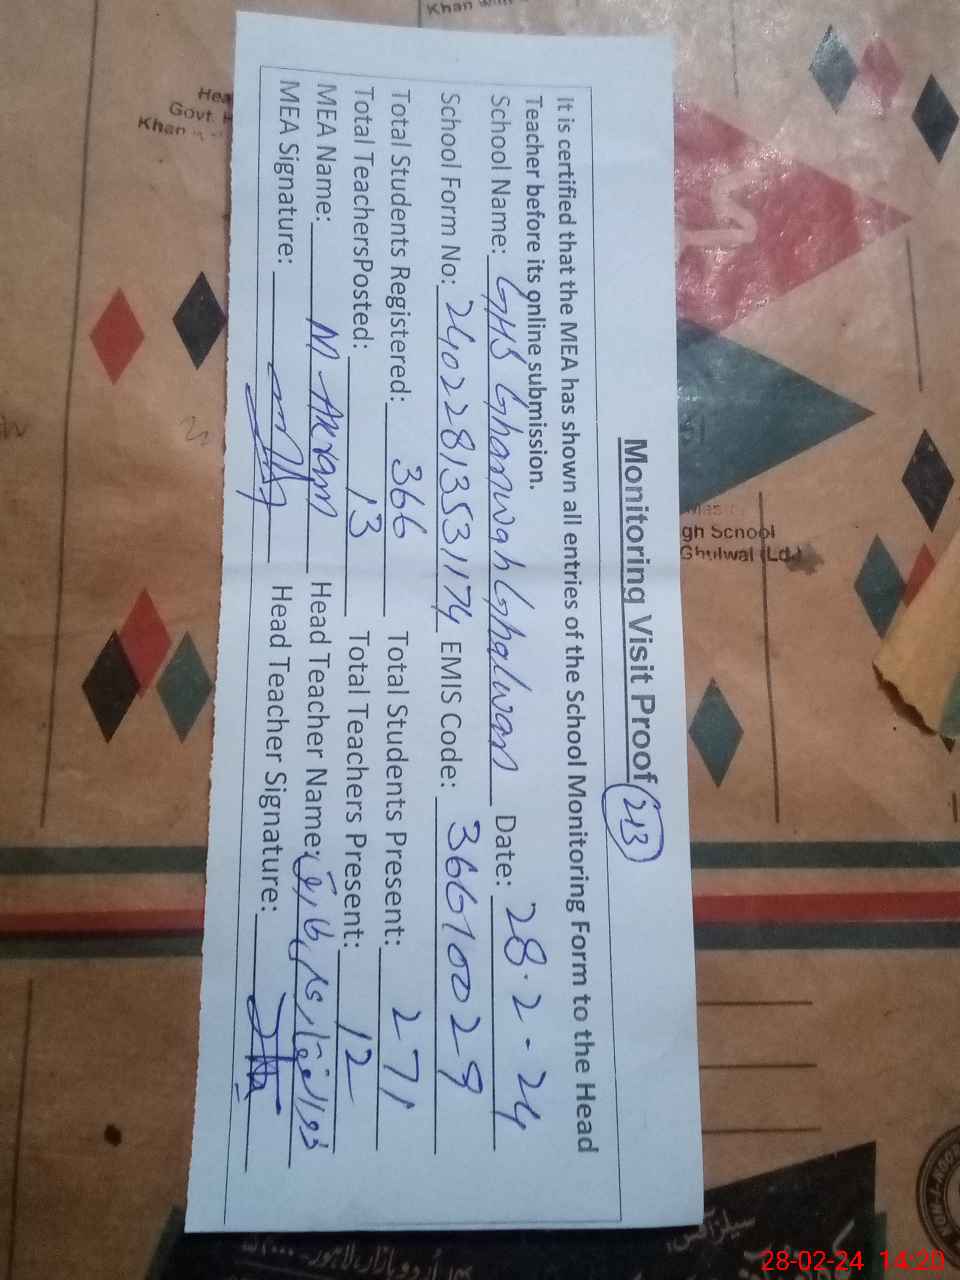 Monitoring Visit Proof 213
It is certified that the MEA has shown all entries of the School Monitoring Form to the Head
Teacher before its online submission.
School Name: GHS Ghanwah Ghalwan Date: 28-2-24
School Form No: 2402281353174 EMIS Code: 36610029
Total Students Registered: 366 Total Students Present: 271
Total TeachersPosted: 13 Total Teachers Present: 12
MEA Name: M. Akram Head Teacher Name: ذوالفقار علی طارق
MEA Signature: Head Teacher Signature:
Khan
Hea
Govt. H
Khan
gh School
Ghulwal (Ld.)
اردو بازار لاہور
28-02-24 14:20